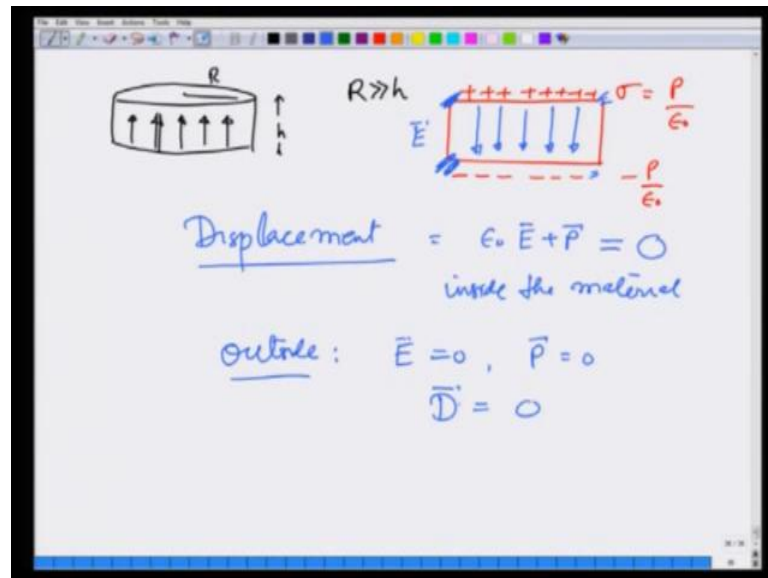 File Edit View Insert Actions Tools Help
R
h
R>>h
+++ ++++++ σ = P/ε₀
Ē
- - - - - - - -P/ε₀
Displacement = ε₀ Ē + P̄ = 0
inside the material
outside : Ē = 0 , P̄ = 0
D̄ = 0